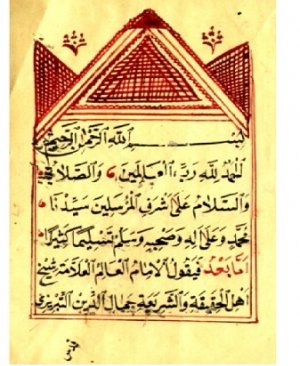 بسم الله الرحمن الرحيم
الحمد لله رب العالمين والصلاة
والسلام على اشرف المرسلين سيدنا
محمد وعلى اله وصحبه وسلم تسليما كثيرا
اما بعد فيقول الامام العالم العلامة شيخ
اهل الحقيقة والشريعة جمال الدين التبريزي